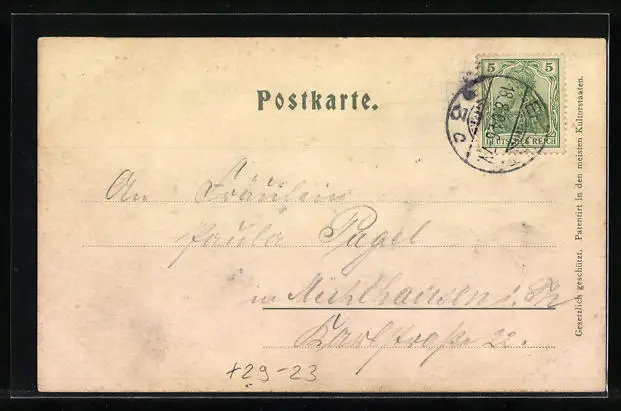 Postkarte.
5 5
DEUTSCHES REICH
An Fräulein
Paula Pagel
in Mühlhausen i. Th
Karlstraße 22.
+29-23
Gesetzlich geschützt. Patentirt in den meisten Kulturstaaten.